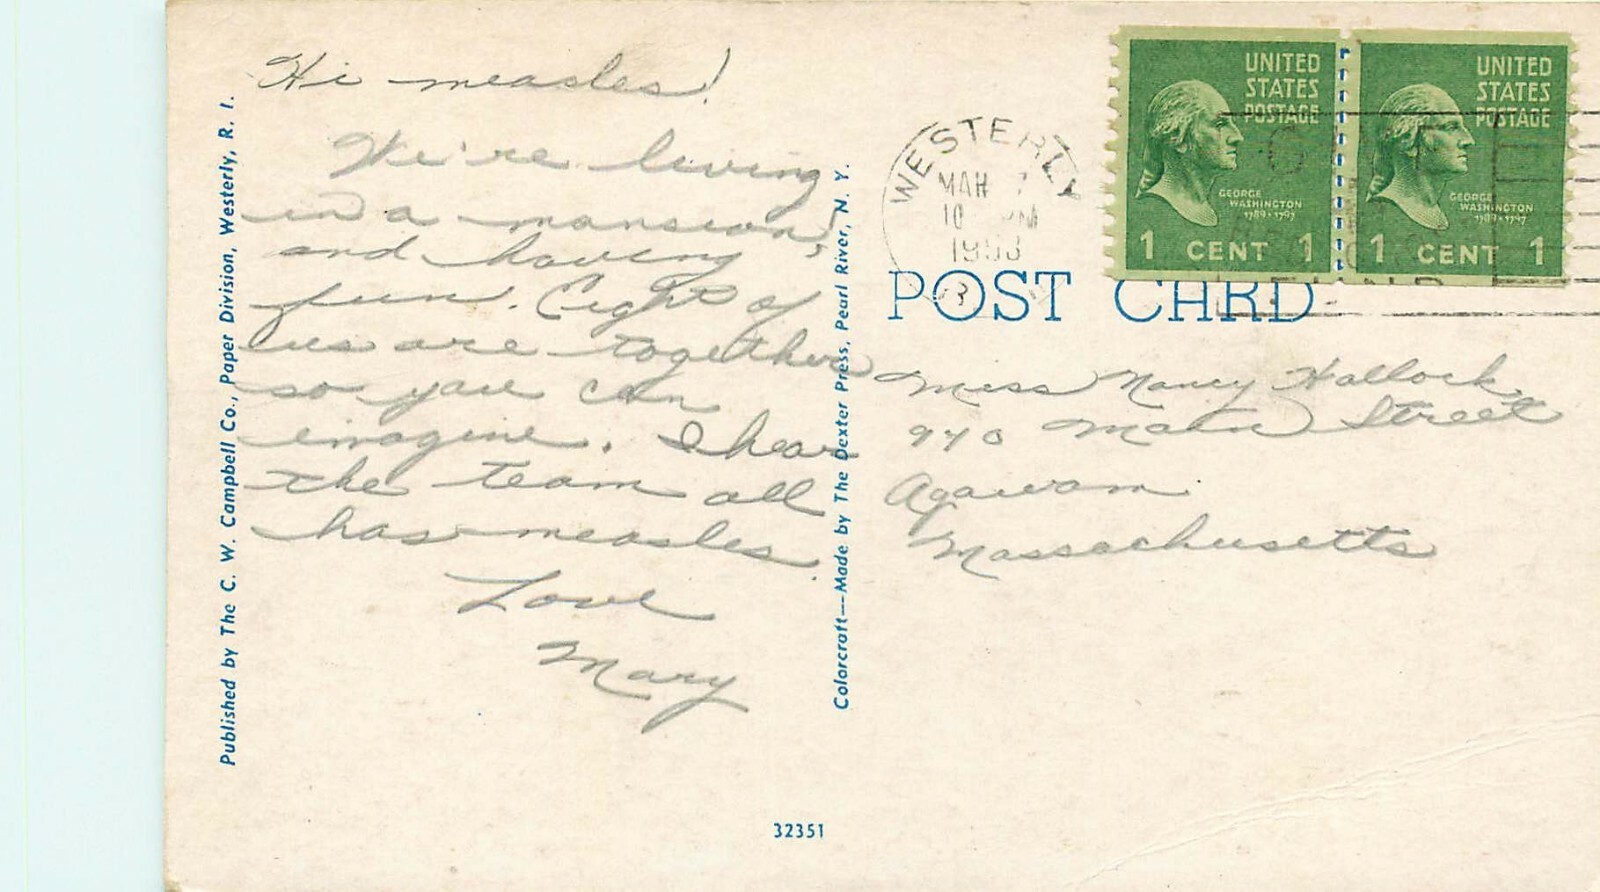 Hi measles!
We're living
in a mansion,
and having
fun. Eight of
us are together
so you can
imagine. I hear
the team all
has measles.
Love
Mary
Published by The C. W. Campbell Co., Paper Division, Westerly, R. I.
Colorcraft—Made by The Dexter Press, Pearl River, N. Y.
32351
WESTERLY
MAR 7
10 PM
1953
R.I.
UNITED
STATES
POSTAGE
GEORGE
WASHINGTON
1789-1797
1 CENT 1
UNITED
STATES
POSTAGE
GEORGE
WASHINGTON
1789-1797
1 CENT 1
POST CARD
Miss Nancy Hallock
940 Main Street
Agawam
Massachusetts